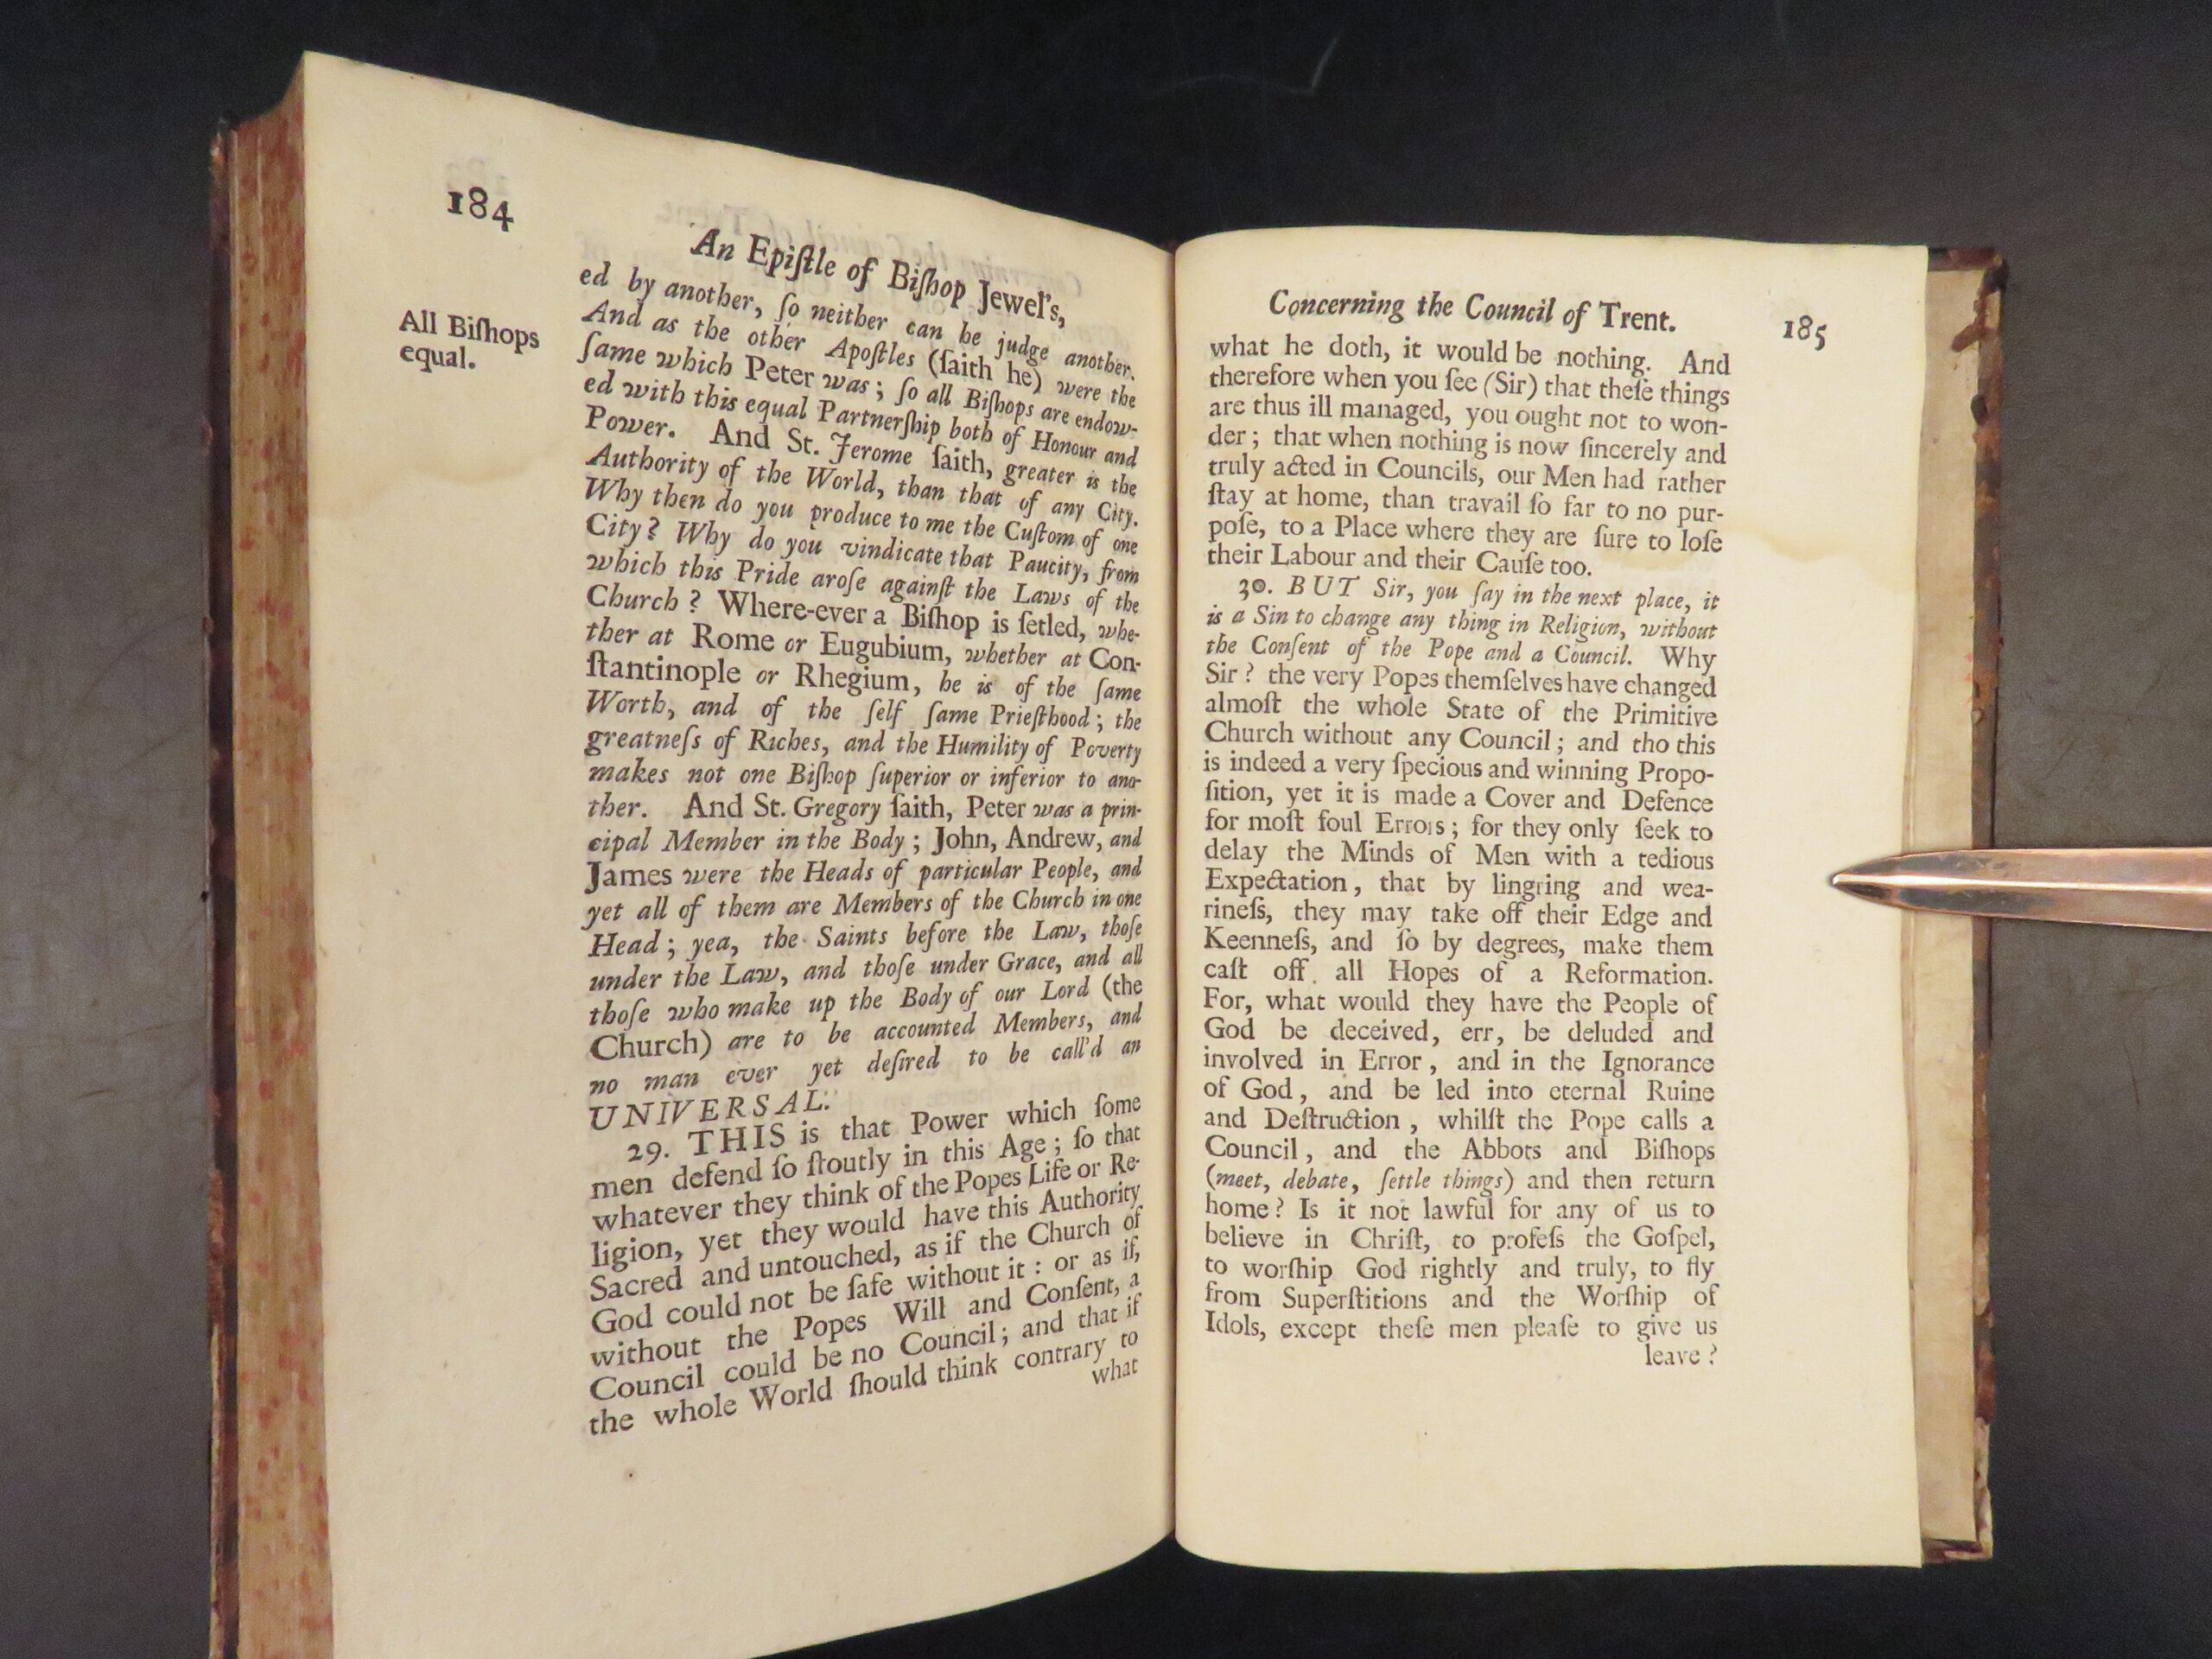 184
An Epiſtle of Biſhop Jewel's,
All Biſhops
equal.
ed by another, ſo neither can he judge another.
And as the other Apoſtles (ſaith he) were the
ſame which Peter was; ſo all Biſhops are endow-
ed with this equal Partnerſhip both of Honour and
Power. And St. Jerome ſaith, greater is the
Authority of the World, than that of any City.
Why then do you produce to me the Cuſtom of one
City? Why do you vindicate that Paucity, from
which this Pride aroſe againſt the Laws of the
Church? Where-ever a Biſhop is ſetled, whe-
ther at Rome or Eugubium, whether at Con-
ſtantinople or Rhegium, he is of the ſame
Worth, and of the ſelf ſame Prieſthood; the
greatneſs of Riches, and the Humility of Poverty
makes not one Biſhop ſuperior or inferior to ano-
ther. And St. Gregory ſaith, Peter was a prin-
cipal Member in the Body; John, Andrew, and
James were the Heads of particular People, and
yet all of them are Members of the Church in one
Head; yea, the Saints before the Law, thoſe
under the Law, and thoſe under Grace, and all
thoſe who make up the Body of our Lord (the
Church) are to be accounted Members, and
no man ever yet deſired to be call'd an
UNIVERSAL.
29. THIS is that Power which ſome
men defend ſo ſtoutly in this Age; ſo that
whatever they think of the Popes Life or Re-
ligion, yet they would have this Authority
Sacred and untouched, as if the Church of
God could not be ſafe without it: or as if,
without the Popes Will and Conſent, a
Council could be no Council; and that if
the whole World ſhould think contrary to
what
Concerning the Council of Trent.
185
what he doth, it would be nothing. And
therefore when you ſee (Sir) that theſe things
are thus ill managed, you ought not to won-
der; that when nothing is now ſincerely and
truly acted in Councils, our Men had rather
ſtay at home, than travail ſo far to no pur-
poſe, to a Place where they are ſure to loſe
their Labour and their Cauſe too.
30. BUT Sir, you ſay in the next place, it
is a Sin to change any thing in Religion, without
the Conſent of the Pope and a Council. Why
Sir? the very Popes themſelves have changed
almoſt the whole State of the Primitive
Church without any Council; and tho this
is indeed a very ſpecious and winning Propo-
ſition, yet it is made a Cover and Defence
for moſt foul Errors; for they only ſeek to
delay the Minds of Men with a tedious
Expectation, that by lingring and wea-
rineſs, they may take off their Edge and
Keenneſs, and ſo by degrees, make them
caſt off all Hopes of a Reformation.
For, what would they have the People of
God be deceived, err, be deluded and
involved in Error, and in the Ignorance
of God, and be led into eternal Ruine
and Deſtruction, whilſt the Pope calls a
Council, and the Abbots and Biſhops
(meet, debate, ſettle things) and then return
home? Is it not lawful for any of us to
believe in Chriſt, to profeſs the Goſpel,
to worſhip God rightly and truly, to fly
from Superſtitions and the Worſhip of
Idols, except theſe men pleaſe to give us
leave?